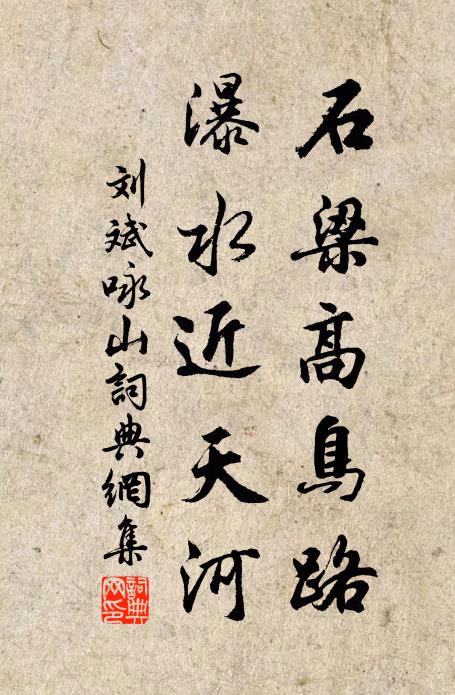 石梁高鳥路
瀑水近天河
刘斌咏山詞典網集
詞典
网印